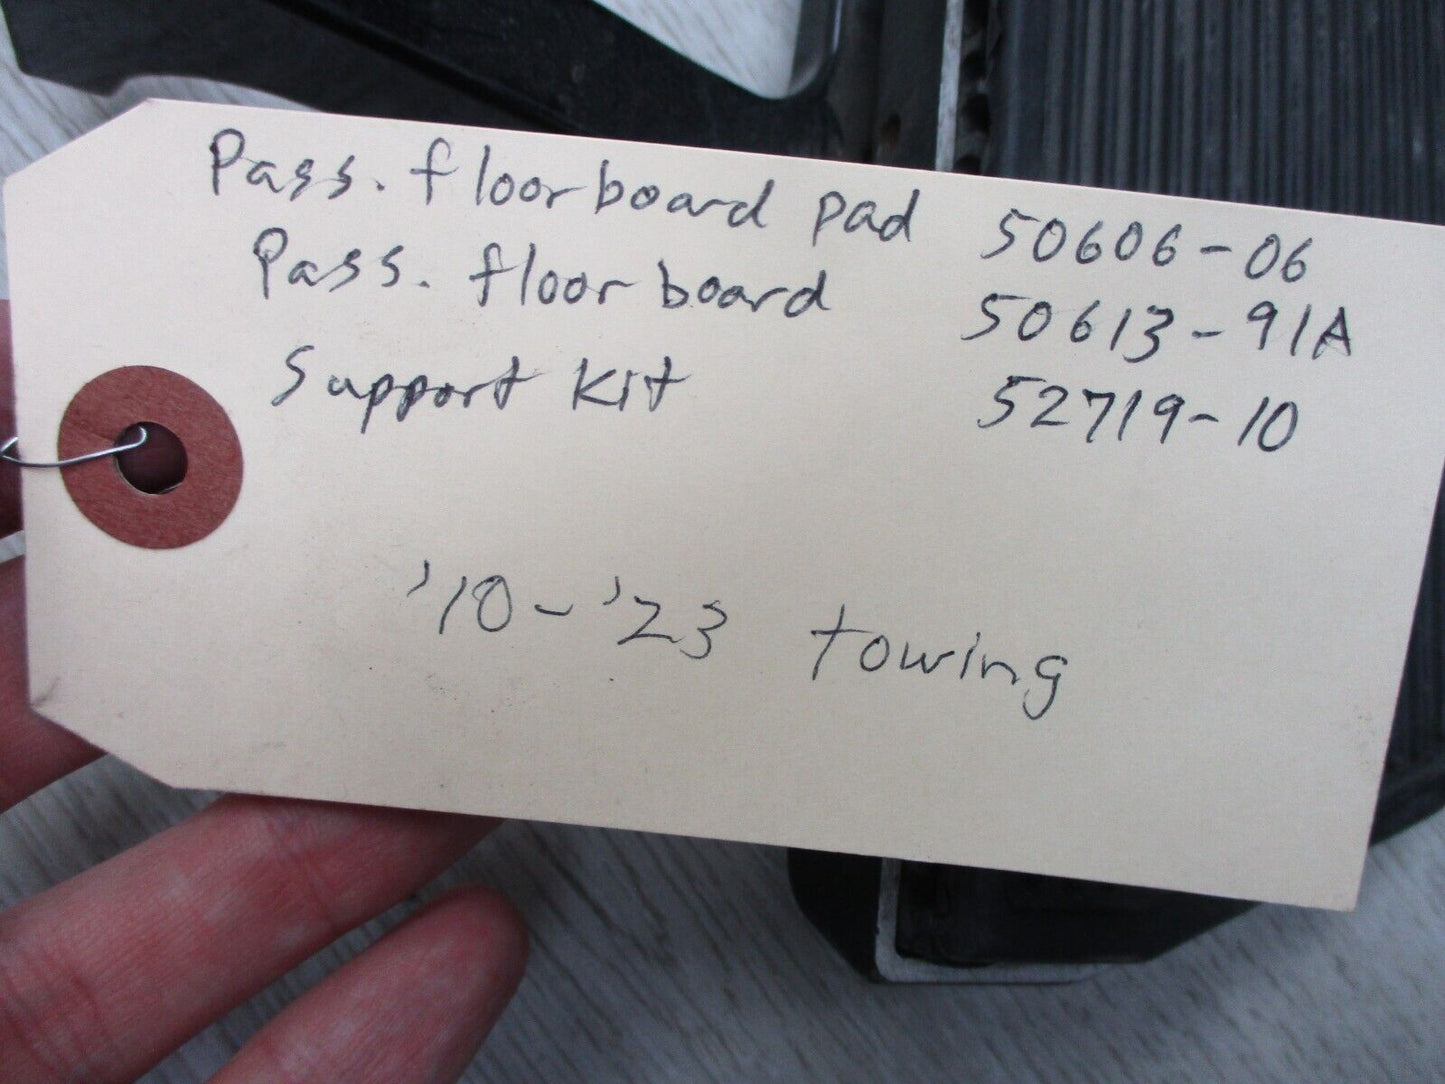 Pass. floorboard pad 50606-06
Pass. floorboard 50613-91A
Support Kit 52719-10
'10-'23 towing